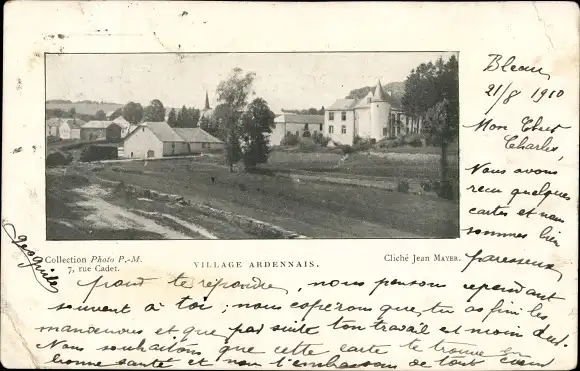 Bleau
21/8 1910
Mon Cher
Charles,
Nous avons
recu quelques
cartes et nous
sommes bien
paresseux
pour te repondre, nous pensons cependant
souvent à toi; nous espérons que, tu as fini les
et que par suite ton travail est moins dur.
Nous souhaitons que cette carte te trouve en
bonne santé et nous t'embrassons de tout coeur
Collection Photo P.-M.
7, rue Cadet.
VILLAGE ARDENNAIS.
Cliché Jean MAYER.